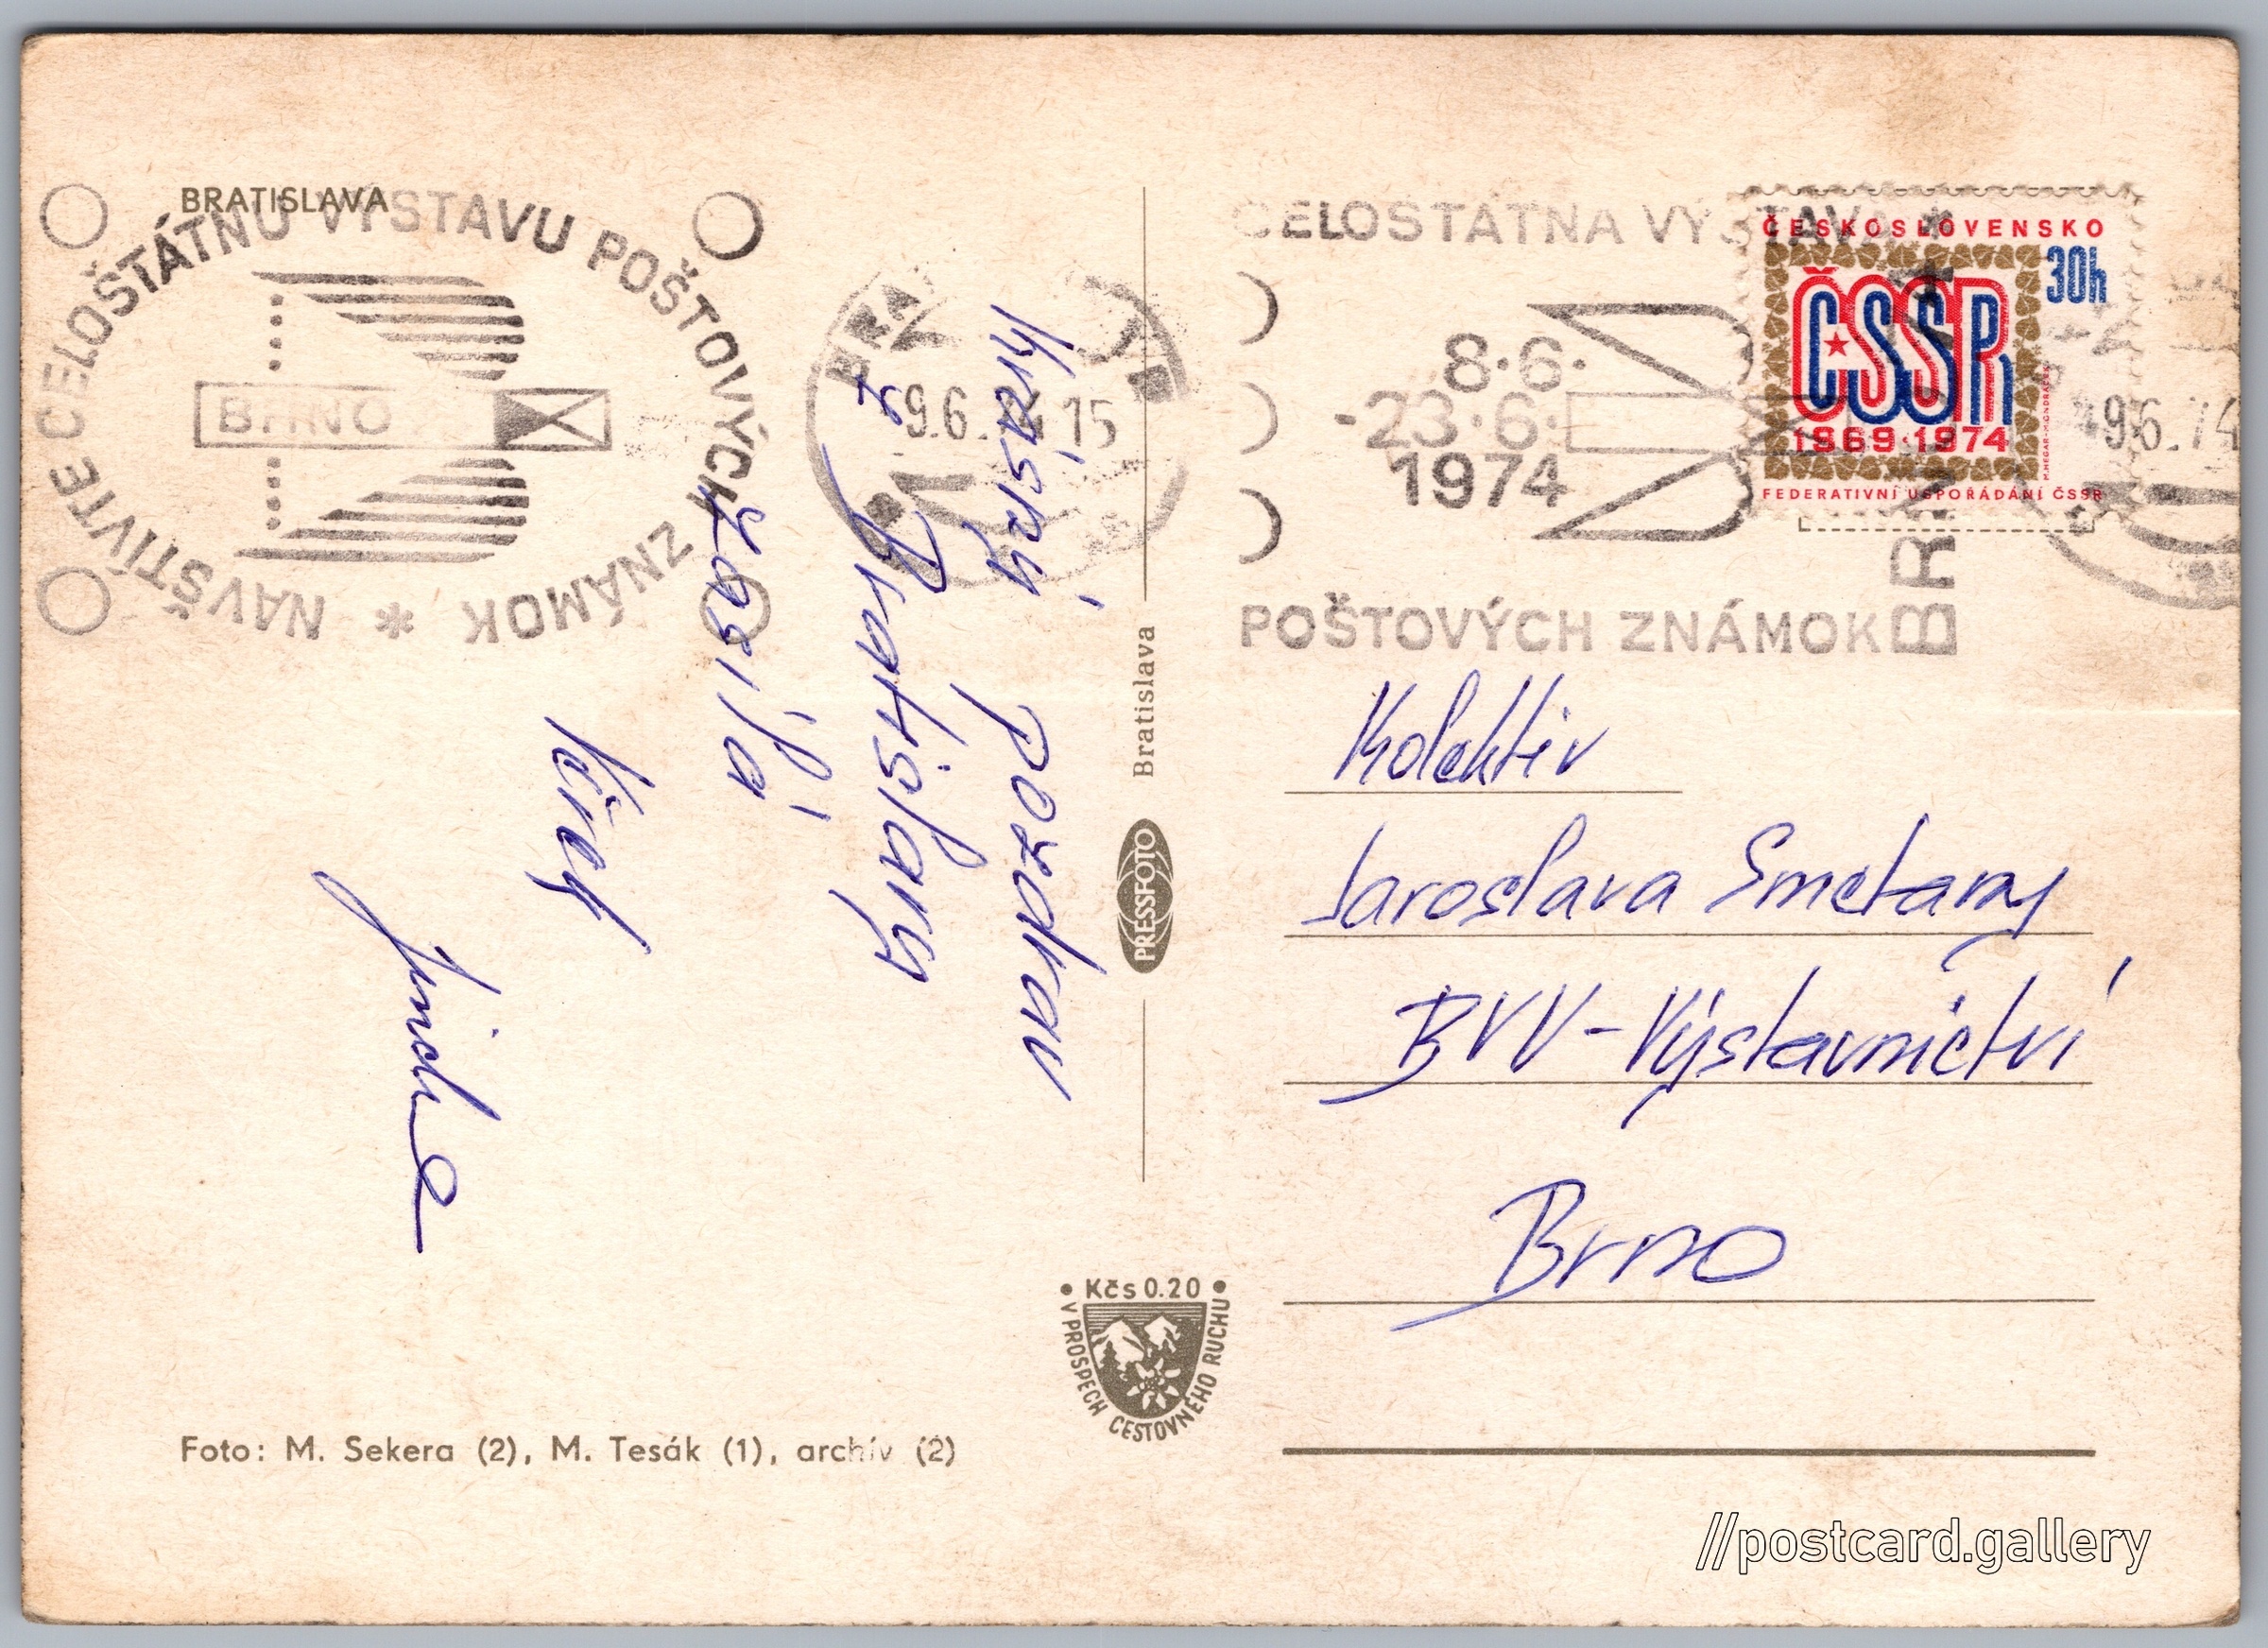 BRATISLAVA
NAVŠTÍVTE CELOŠTÁTNU VÝSTAVU POŠTOVÝCH ZNÁMOK *
BRNO
9.6. 15
Krásný Pozdrav
z Bratislavy
zasílá
Jirek
Bratislava
PRESSFOTO
• Kčs 0.20 •
V PROSPECH CESTOVNÉHO RUCHU
Foto: M. Sekera (2), M. Tesák (1), archív (2)
CELOSTÁTNA VÝSTAVA *
8·6·
-23·6·
1974
POŠTOVÝCH ZNÁMOK
ČESKOSLOVENSKO
30h
ČSSR
1969·1974
FEDERATIVNÍ USPOŘÁDÁNÍ ČSSR
9.6.74
Kolektiv
Jaroslava Smetany
BVV-Výstavnictví
Brno
//postcard.gallery